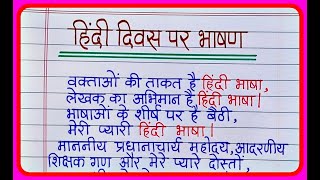 हिंदी दिवस पर भाषण
वक्ताओं की ताकत है हिंदी भाषा,
लेखक का अभिमान है हिंदी भाषा|
भाषाओं के शीर्ष पर है बैठी,
मेरी प्यारी हिंदी भाषा|
माननीय प्रधानाचार्य महोदय,आदरणीय
शिक्षक गण और मेरे प्यारे दोस्तों,